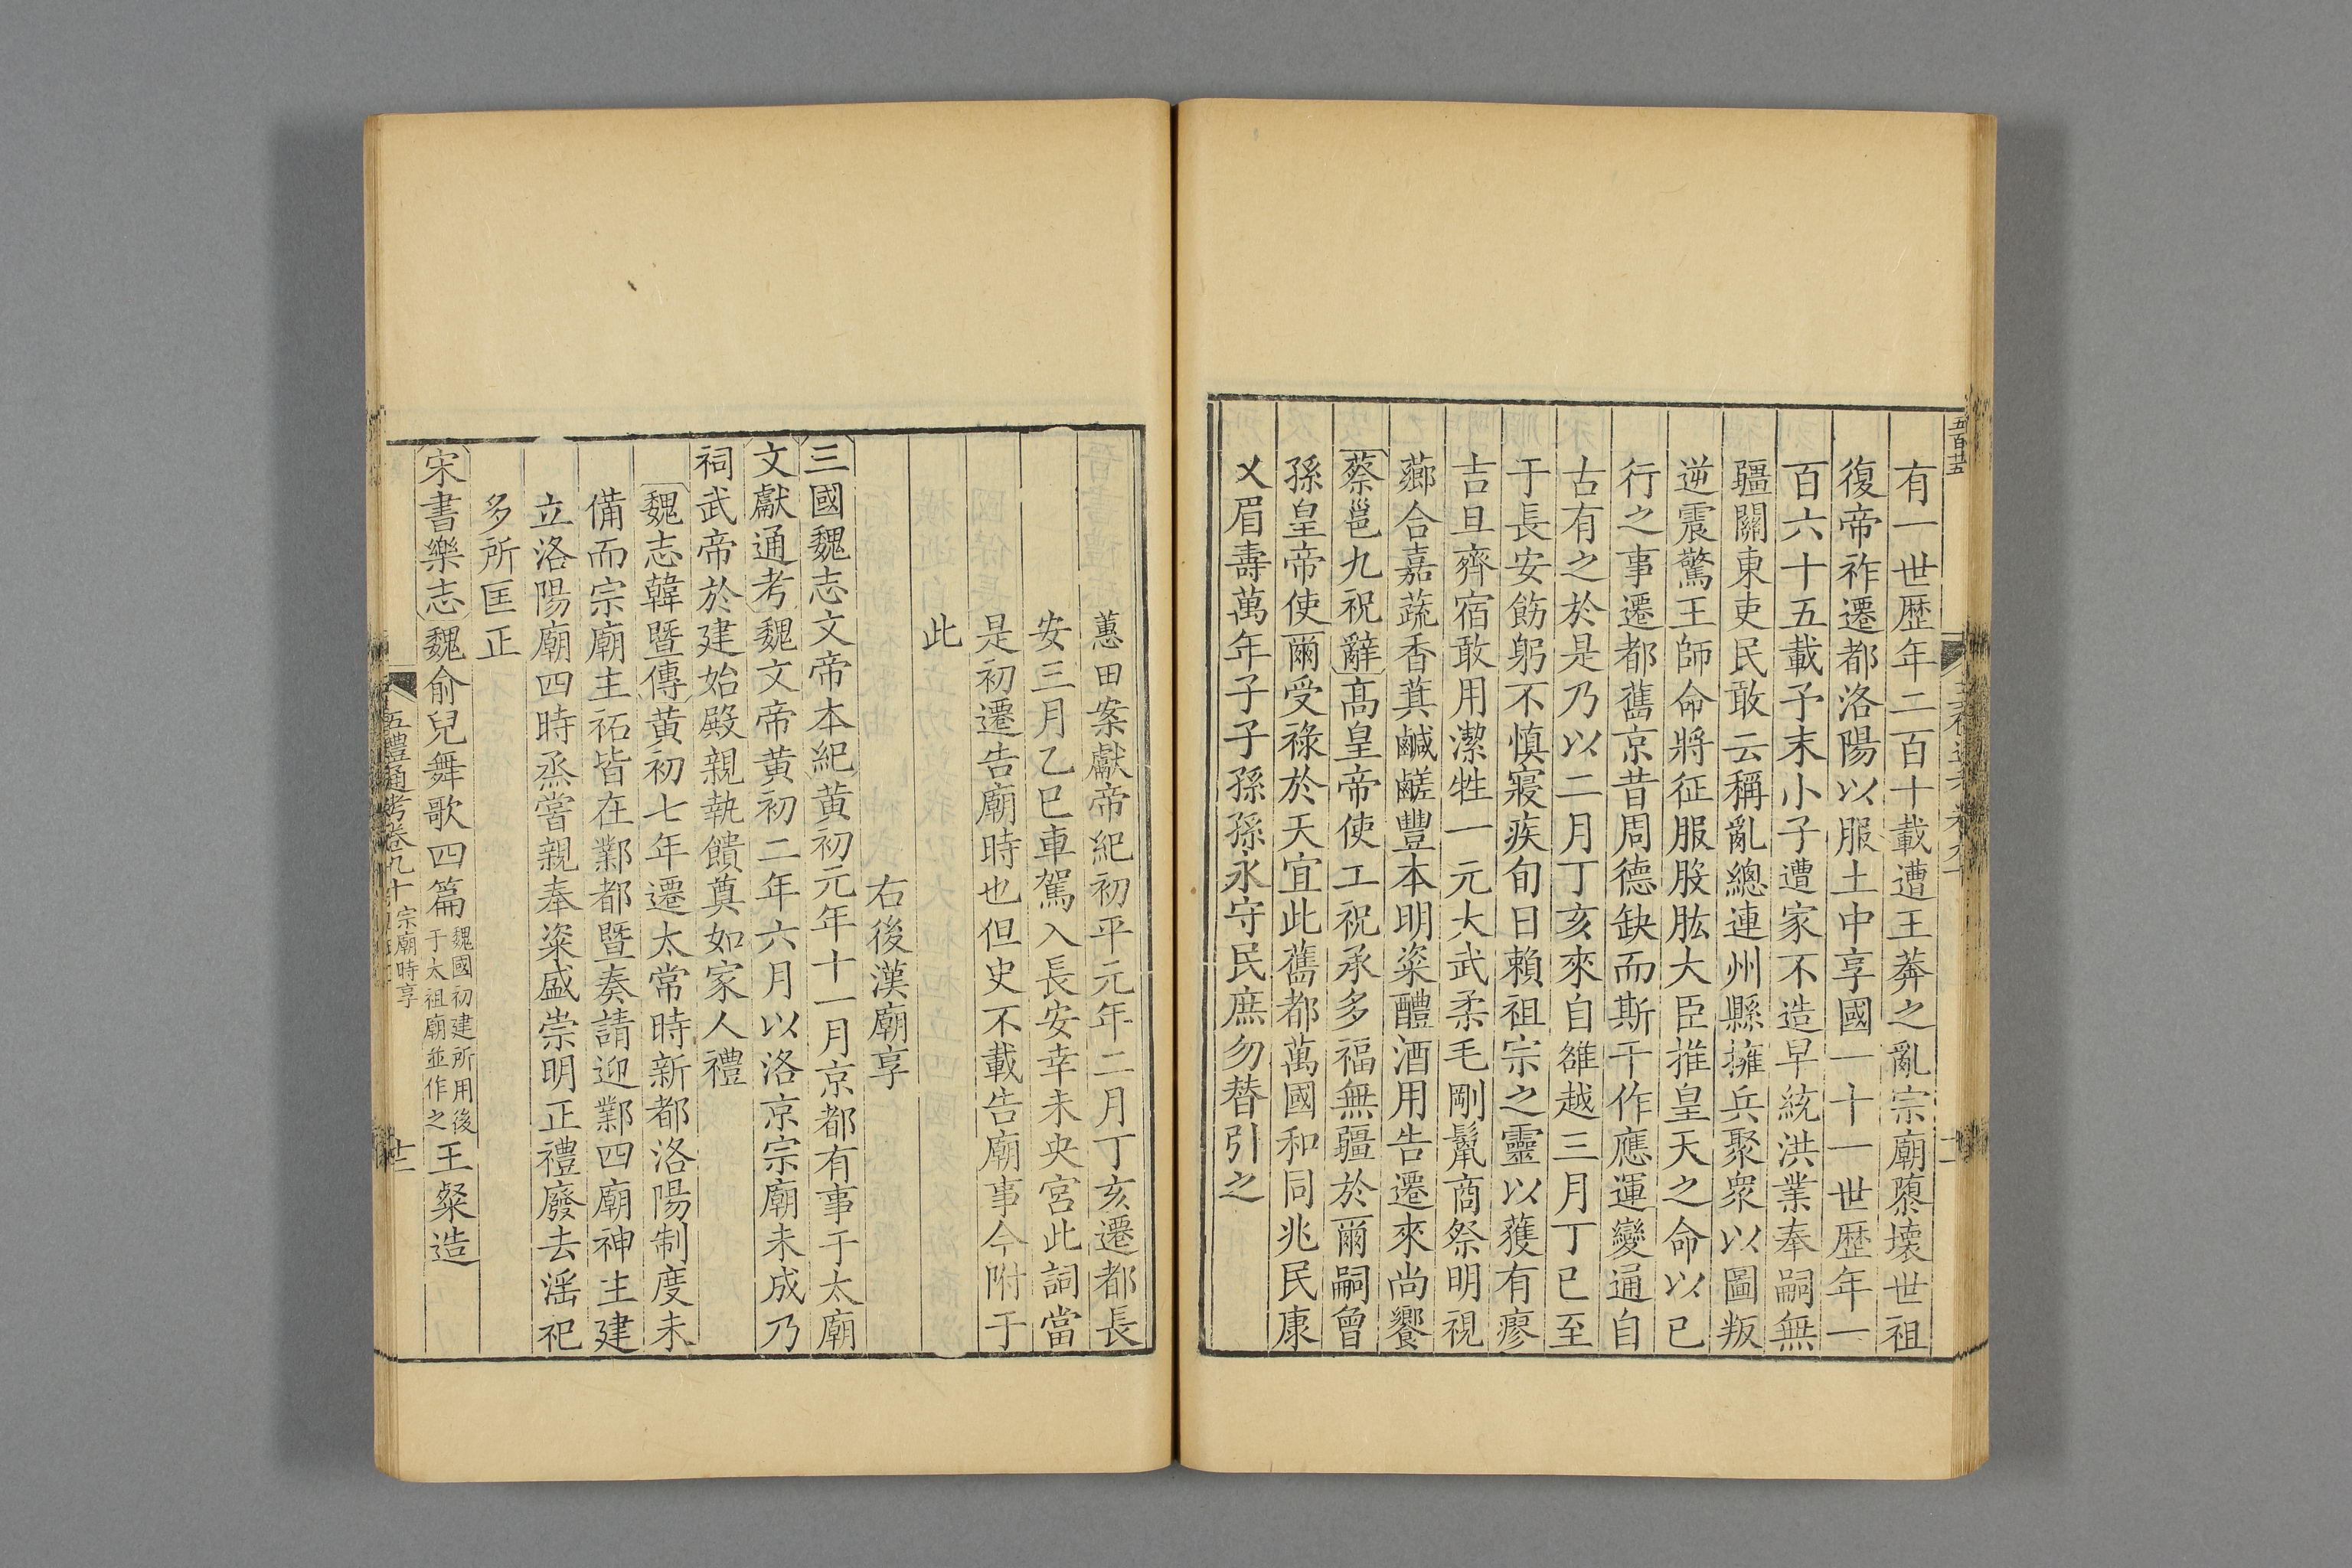 五百廿五
有一世歴年二百十載遭王莽之亂宗廟隳壞世祖
復帝祚遷都洛陽以服土中享國一十一世歴年一
百六十五載予末小子遭家不造早統洪業奉嗣無
疆關東吏民敢云稱亂總連州縣擁兵聚衆以圖叛
逆震驚王師命將征服股肱大臣推皇天之命以已
行之事遷都舊京昔周德缺而斯干作應運變通自
古有之於是乃以二月丁亥來自雒越三月丁巳至
于長安飭躬不慎寢疾旬日賴祖宗之靈以獲有瘳
吉旦齊宿敢用潔牲一元大武柔毛剛鬛商祭明視
薌合嘉蔬香萁鹹鹺豐本明粢醴酒用告遷來尚饗
蔡邕九祝辭高皇帝使工祝承多福無疆於爾嗣曾
孫皇帝使爾受祿於天宜此舊都萬國和同兆民康
乂眉壽萬年子子孫孫永守民庶勿替引之
蕙田案獻帝紀初平元年二月丁亥遷都長
安三月乙巳車駕入長安幸未央宮此詞當
是初遷告廟時也但史不載告廟事今附于
此
右後漢廟享
三國魏志文帝本紀黄初元年十一月京都有事于太廟
文獻通考魏文帝黄初二年六月以洛京宗廟未成乃
祠武帝於建始殿親執饋奠如家人禮
魏志韓暨傳黄初七年遷太常時新都洛陽制度未
備而宗廟主祏皆在鄴都暨奏請迎鄴四廟神主建
立洛陽廟四時烝嘗親奉粢盛崇明正禮廢去淫祀
多所匡正
宋書樂志魏俞兒舞歌四篇魏國初建所用後于太祖廟並作之王粲造
五禮通考卷九十 宗廟時享